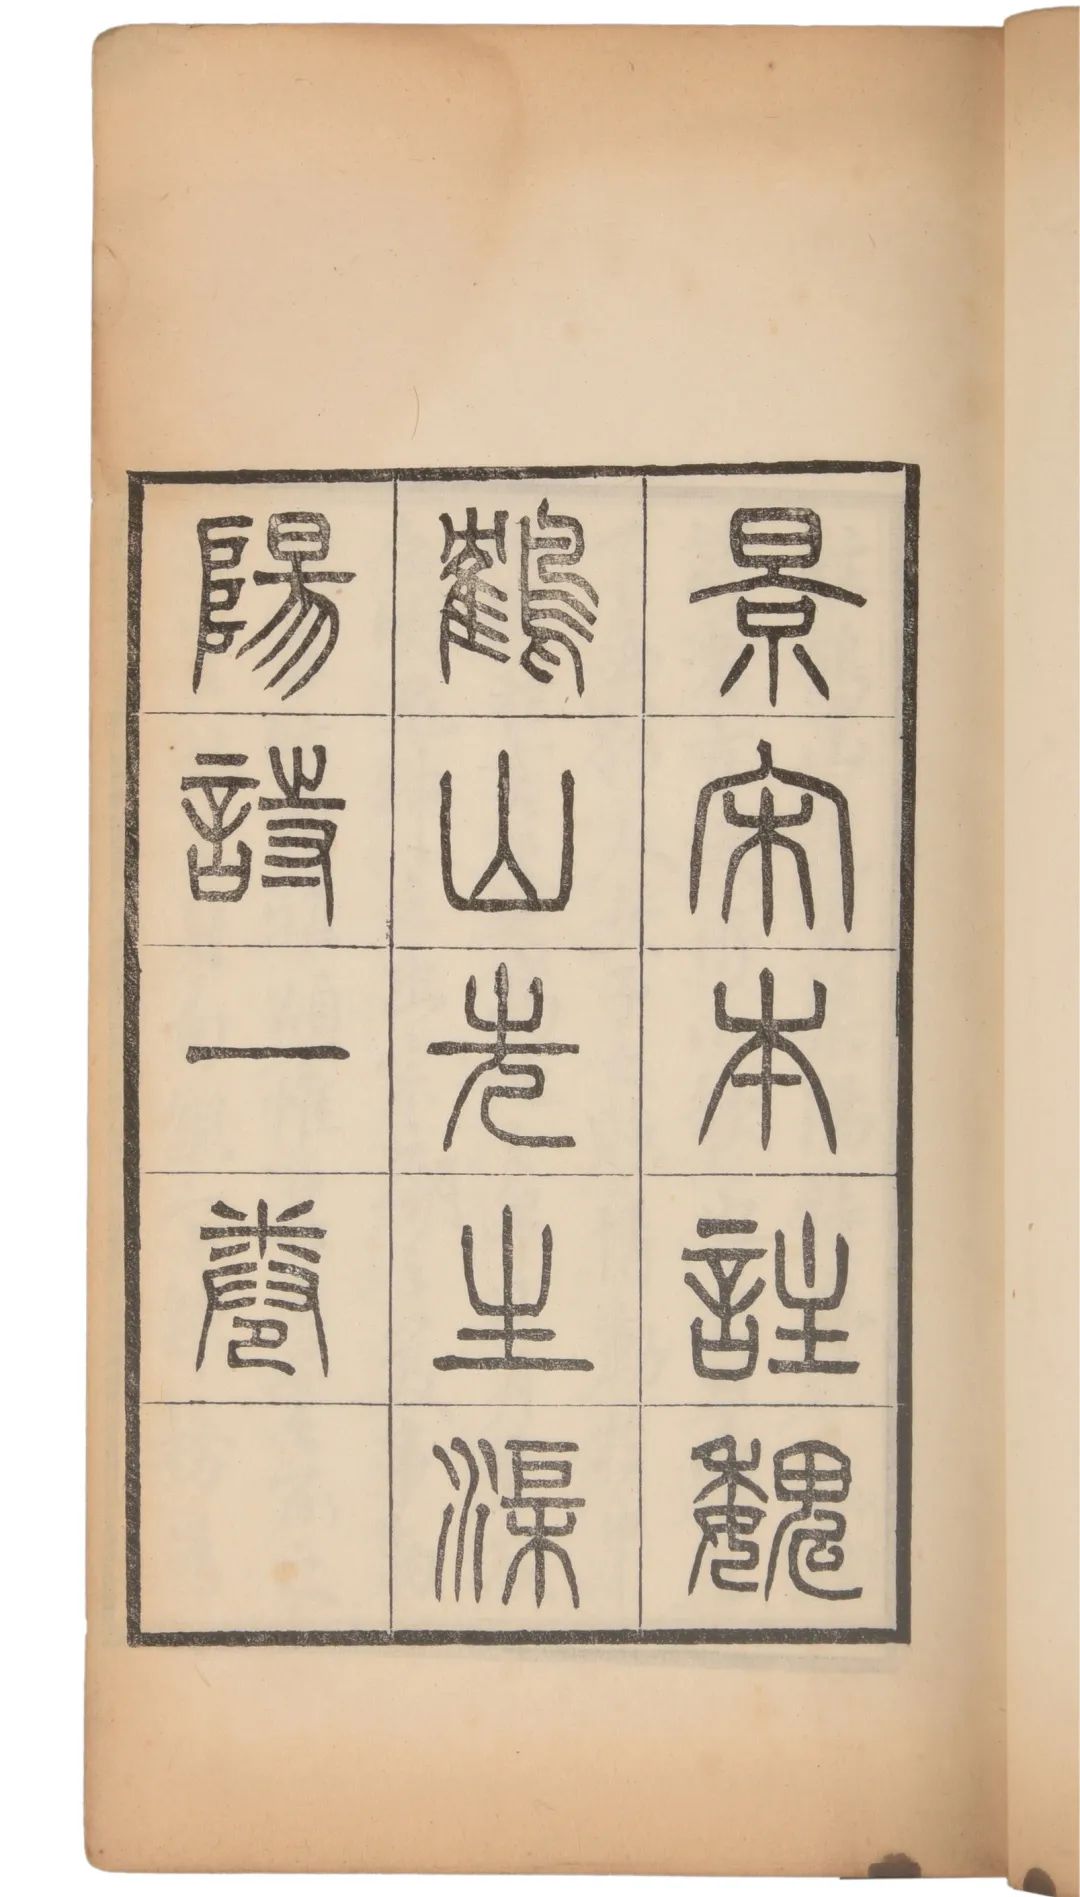 景宋本註魏
鶴山先生渠
陽詩一卷